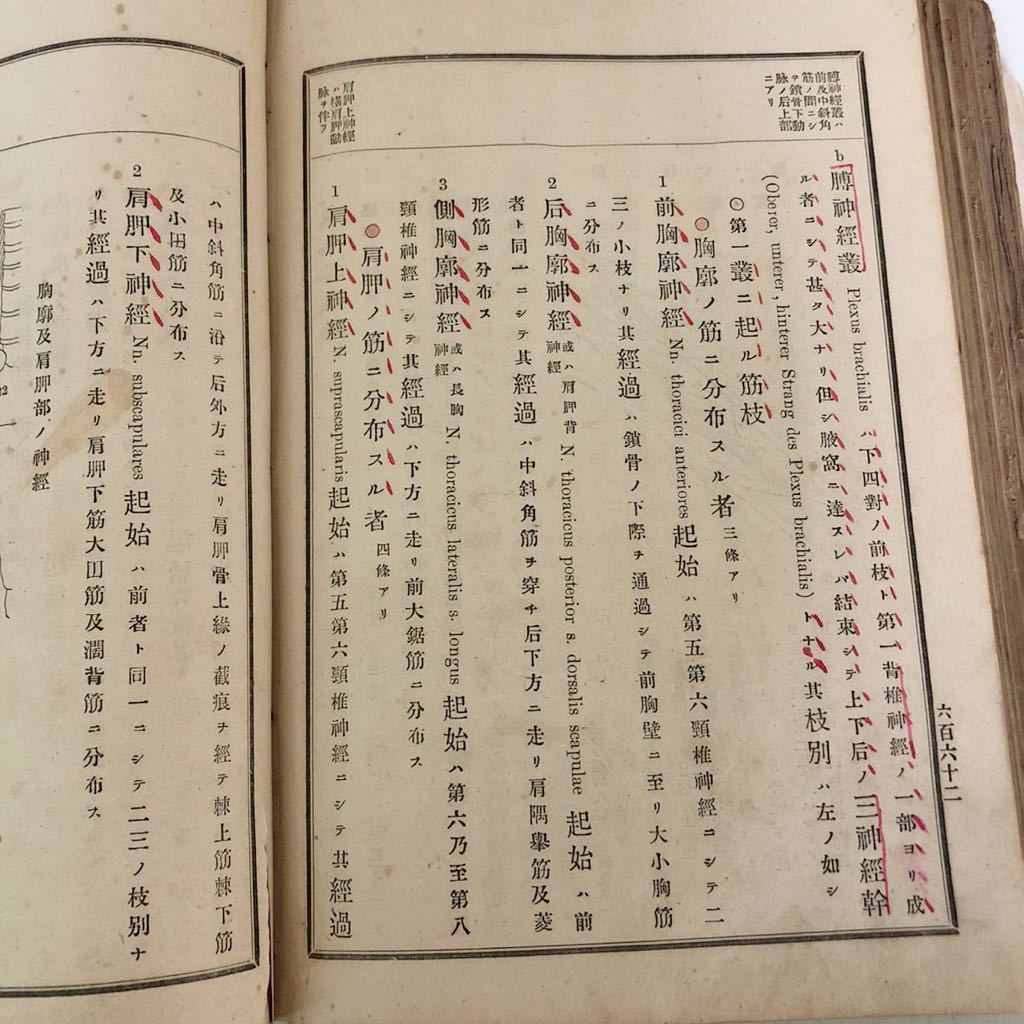 六百六十二
膊神經叢ハ
前及中斜角
筋ノ間ニシ
テ鎖骨下動
脉ノ后上部
ニアリ
肩胛上神經
ハ横肩胛動
脉ヲ伴フ
b 膊神經叢 Plexus brachialis ハ下四對ノ前枝ト第一背椎神經ノ一部ヨリ成
ル者ニシテ甚タ大ナリ但シ腋窩ニ達スレバ結束シテ上下后ノ三神經幹
(Oberer, unterer, hinterer Strang des Plexus brachialis) トナル其枝別ハ左ノ如シ
○第一叢ニ起ル筋枝
胸廓ノ筋ニ分布スル者 三條アリ
1 前胸廓神經 Nn. thoracici anteriores 起始ハ第五第六頸椎神經ニシテ二
三ノ小枝ナリ其經過ハ鎖骨ノ下際ヲ通過シテ前胸壁ニ至リ大小胸筋
ニ分布ス
2 后胸廓神經 或ハ肩胛背神經 N. thoracicus posterior s. dorsalis scapulae 起始ハ前
者ト同一ニシテ其經過ハ中斜角筋ヲ穿チ后下方ニ走リ肩隅擧筋及菱
形筋ニ分布ス
3 側胸廓神經 或ハ長胸神經 N. thoracicus lateralis s. longus 起始ハ第六乃至第八
頸椎神經ニシテ其經過ハ下方ニ走リ前大鋸筋ニ分布ス
肩胛ノ筋ニ分布スル者 四條アリ
1 肩胛上神經 N. suprascapularis 起始ハ第五第六頸椎神經ニシテ其經過
ハ中斜角筋ニ沿テ后外方ニ走リ肩胛骨上緣ノ截痕ヲ經テ棘上筋棘下筋
及小田筋ニ分布ス
2 肩胛下神經 Nn. subscapulares 起始ハ前者ト同一ニシテ二三ノ枝別ナ
リ其經過ハ下方ニ走リ肩胛下筋大田筋及濶背筋ニ分布ス
胸廓及肩胛部ノ神經